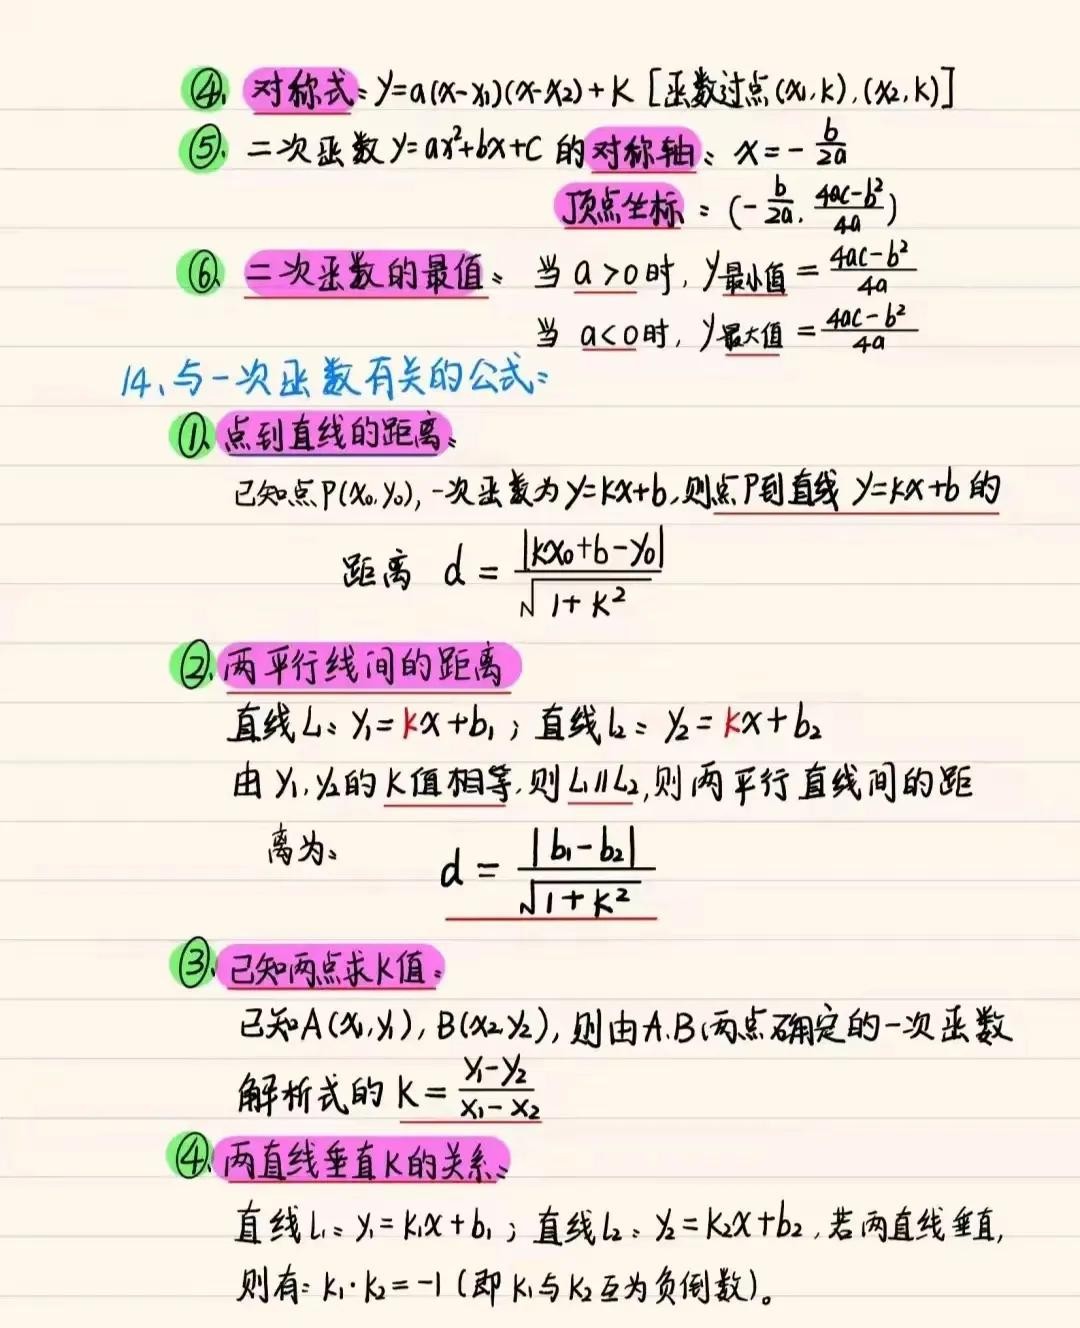 ④、对称式：y=a(x-x₁)(x-x₂)+k [函数过点(x₁,k),(x₂,k)]
⑤、二次函数y=ax²+bx+c的对称轴：x=-b/2a
顶点坐标：(-b/2a, 4ac-b²/4a)
⑥、二次函数的最值：当a>0时，y最小值=4ac-b²/4a
当a<0时，y最大值=4ac-b²/4a
14、与一次函数有关的公式：
①、点到直线的距离：
已知点P(x₀,y₀)，一次函数为y=kx+b，则点P到直线y=kx+b的
距离 d=|kx₀+b-y₀|/√1+k²
②、两平行线间的距离
直线L₁：y₁=kx+b₁；直线L₂：y₂=kx+b₂
由y₁,y₂的k值相等，则L₁∥L₂，则两平行直线间的距
离为： d=|b₁-b₂|/√1+k²
③、已知两点求k值：
已知A(x₁,y₁)，B(x₂,y₂)，则由A.B两点确定的一次函数
解析式的k=y₁-y₂/x₁-x₂
④、两直线垂直k的关系：
直线L₁：y₁=k₁x+b₁；直线L₂：y₂=k₂x+b₂，若两直线垂直，
则有：k₁·k₂=-1（即k₁与k₂互为负倒数）。